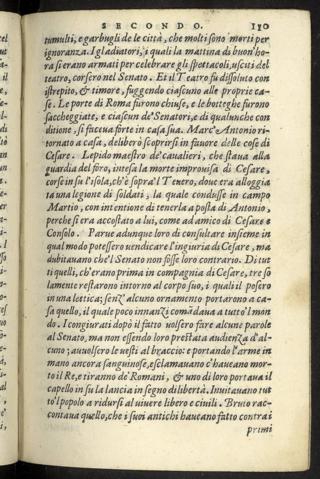 SECONDO. 150
tumulti, e garbugli de le città, che molti sono merti per
ignoranza. I gladiatori, i quali la mattina di buon'ho-
ra si erano armati per celebrare gli spettacoli, usciti del
teatro, corsero nel Senato. Et il Teatro fu dissoluto con
istrepito, & timore, fuggendo ciascuno alle proprie ca-
se. Le porte di Roma furono chiuse, e le botteghe furono
saccheggiate, e ciascun de' Senatori, e di qualunche con
ditione, si faceua forte in casa sua. Marc'Antonio ri-
tornato a casa, deliberò scoprirsi in fauore delle cose di
Cesare. Lepido maestro de' caualieri, che staua alla
guardia del foro, intesa la morte improuisa di Cesare,
corse in su l'isola, ch'è sopra'l Teuero, doue era alloggia
ta una legione di soldati, la quale condusse in campo
Martio, con intentione di tenerla a posta di Antonio,
perche si era accostato a lui, come ad amico di Cesare e
Consolo. Parue adunque loro di consultare insieme in
qual modo potessero uendicare l'ingiuria di Cesare, ma
dubitauano che'l Senato non fosse loro contrario. Di tut
ti quelli, ch'erano prima in compagnia di Cesare, tre so
lamente restarono intorno al corpo suo, i quali il posero
in una lettica; senz'alcuno ornamento portarono a ca-
sa quello, il quale poco innanzi comādaua a tutto'l mon
do. I congiurati dopò il fatto uolsero fare alcune parole
al Senato, ma non essendo loro prestata audienza d'al-
cuno; auuolsero le uesti al braccio: e portando l'arme in
mano ancora sanguinose, esclamauano c'haueano mor-
to il Re, e tiranno de' Romani, & uno di loro portaua il
capello in su la lancia in segno di libertà. Inuitauano tut
to'l popolo a ridursi al uiuere libero e ciuile. Bruto rac-
contaua quello, che i suoi antichi haueano fatto contra i
primi